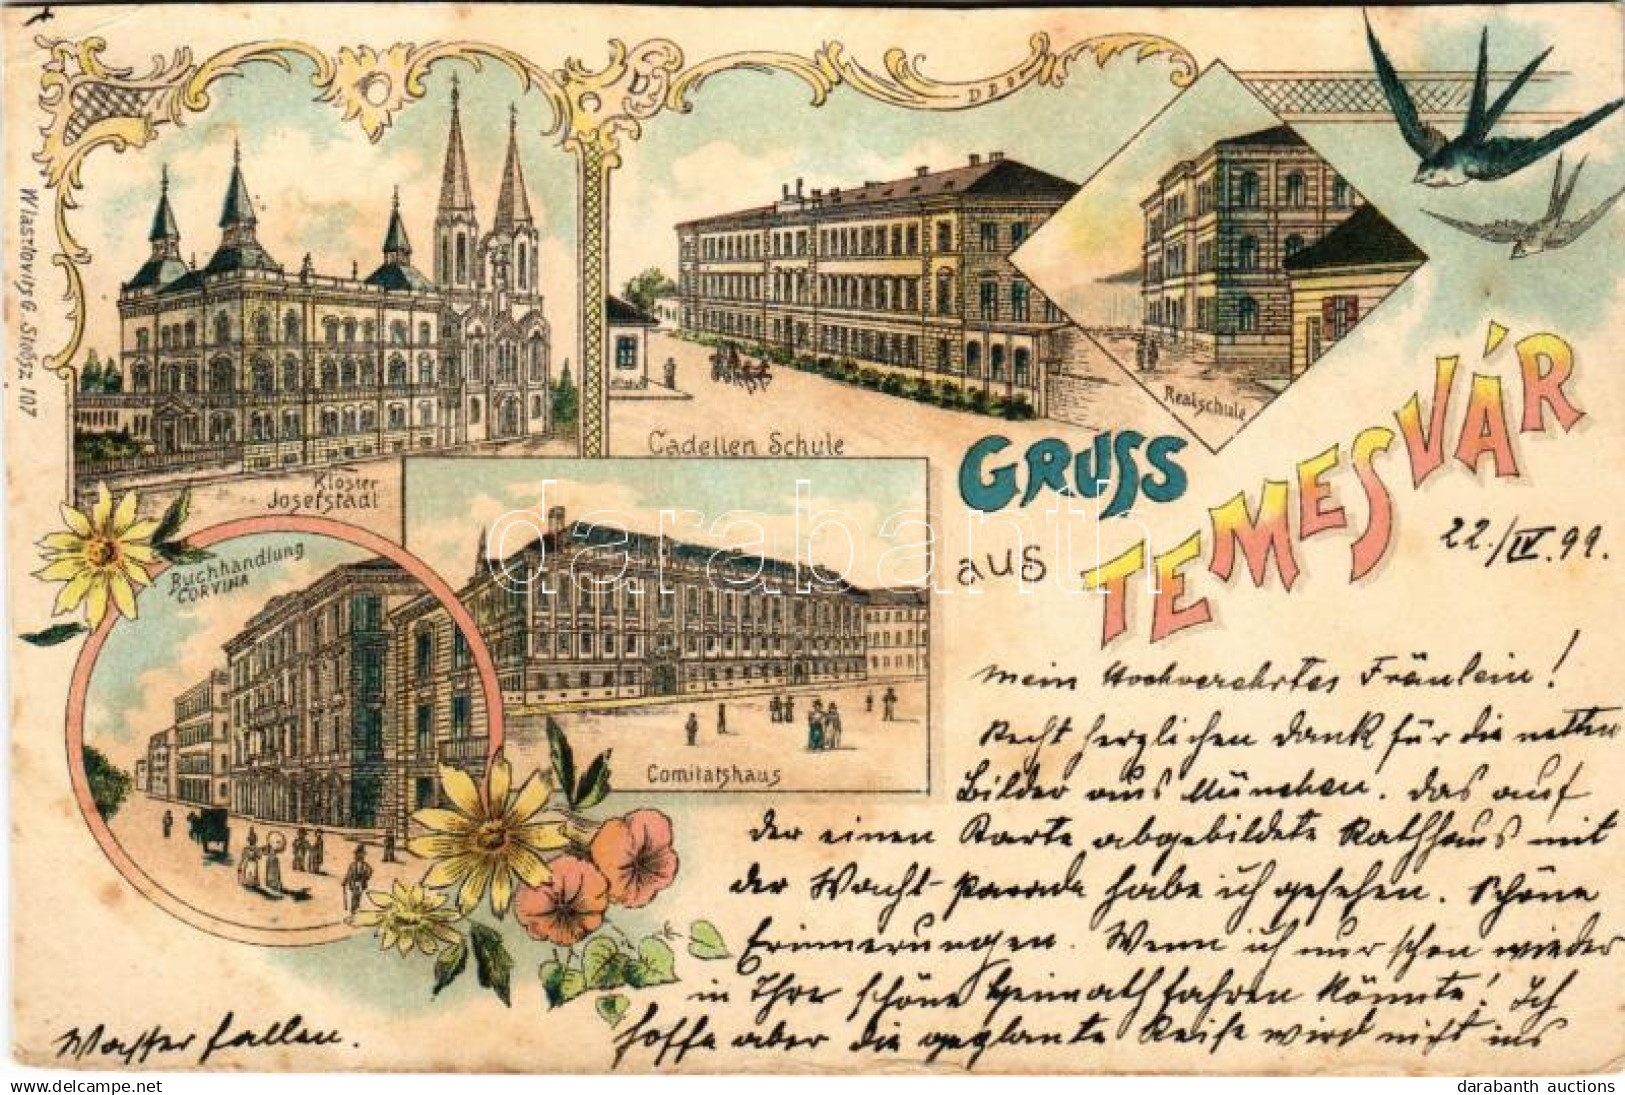 Wlastlovity G. Stoósz 107
Kloster
Josefstadt
Cadetten Schule
Realschule
GRUSS
aus
TEMESVÁR
22./IV.99.
Buchhandlung
CORVINA
Comitatshaus
darabanth
mein Hochverehrtes Fräulein!
Recht herzlichen Dank für die netten
Bilder aus München. Das auf
der einen Karte abgebildete Rathhaus mit
der Wacht-Parade habe ich gesehen. Schöne
Erinnerungen. Wenn ich nur schon wieder
in Ihre schöne Heimath fahren könnte! Ich
hoffe aber die geplante Reise wird nicht ins
Wasser fallen.
delcampe.net
darabanth auctions